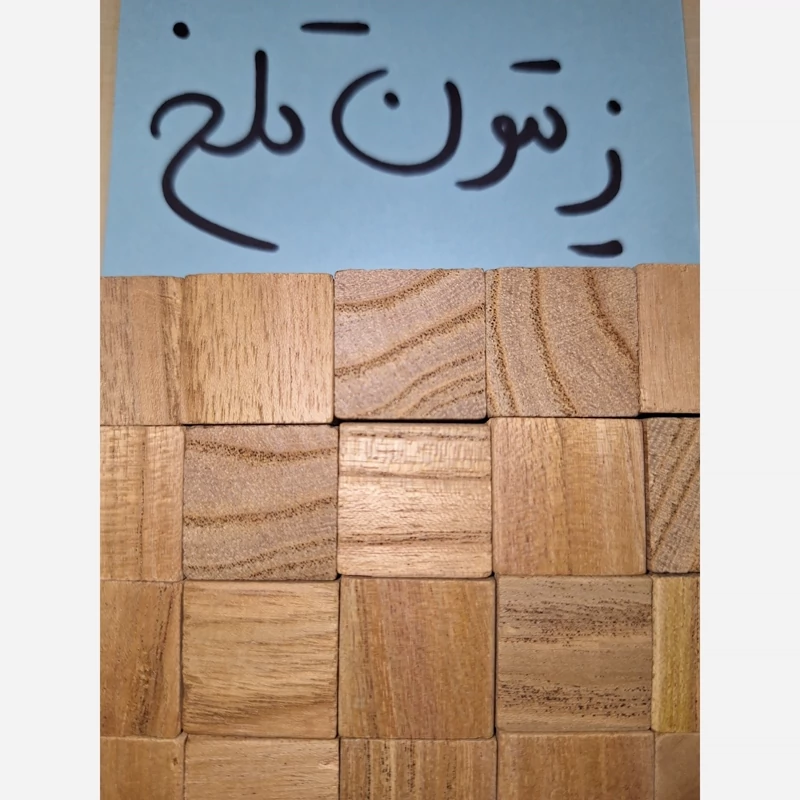 زیتون تلخ